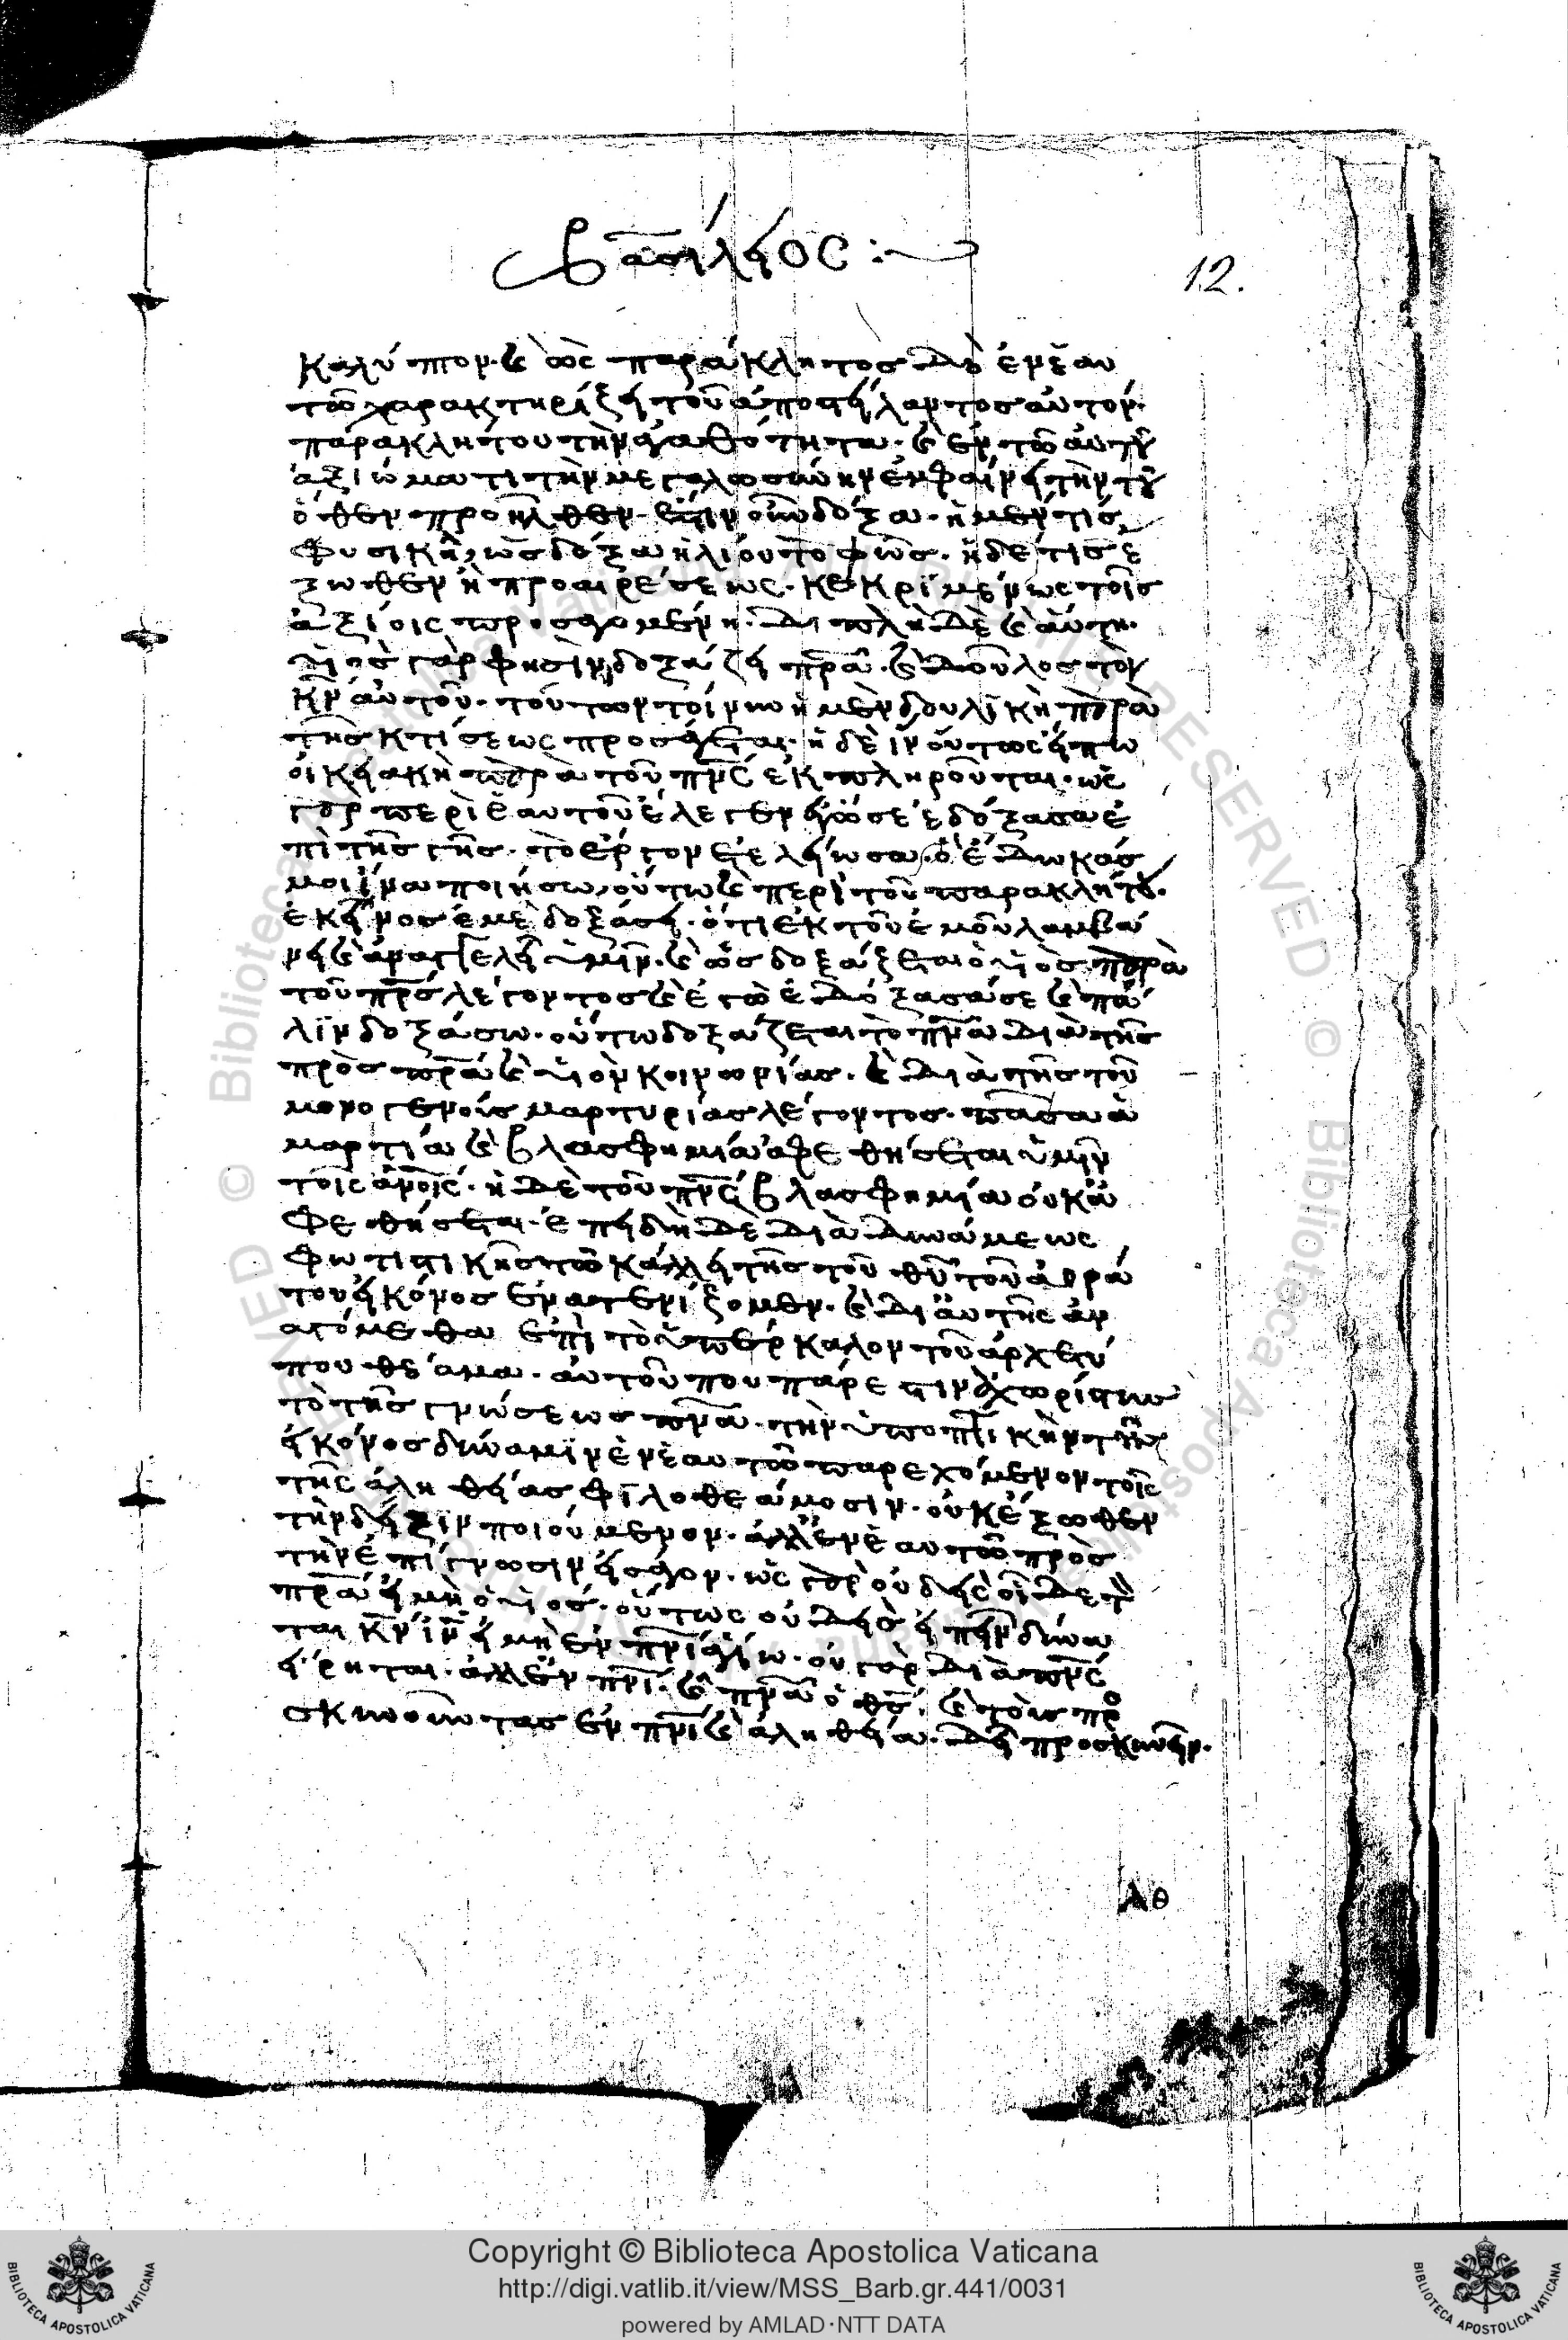 βασίλειος :~
12.
καλύπτον. καὶ ὡς παράκλητος δὲ ἐν ἑαυ
τῶ χαρακτηρίζει τοῦ ἀποστείλαντος αὐτὸν
παρακλήτου τὴν ἀγαθότητα. καὶ ἐν τῶ αὐτοῦ
ἀξιώματι τὴν μεγαλωσύνην ἐμφαίνει τὴν τοῦ
ὅθεν προῆλθεν. ἔστιν οὖν δόξα. ἡ μέν τις
φυσικὴ, ὡς δόξα ἡλίου τὸ φῶς. ἡ δέ τις ἔ
ξωθεν ἡ προαιρέσεως. κεκριμένως τοῖς
ἀξίοις προσαγομένη. διπλὴ δὲ καὶ αὐτή.
υἱὸς γὰρ φησὶν δοξάζει πρα. καὶ δοῦλος τὸν
κν αὐτοῦ. τούτων τοίνυν ἡ μὲν δουλικὴ παρὰ
τῆς κτίσεως προσάγεται. ἡ δὲ ἵν οὕτως εἴπω
οἰκειακὴ παρὰ τοῦ πνς ἐκπληροῦται. ὡς
γὰρ περὶ ἑαυτοῦ ἔλεγεν ἐγώ σε ἐδόξασα ἐ
πὶ τῆς γῆς. τὸ ἔργον ἐτελείωσα, ὃ ἔδωκάς
μοι ἵνα ποιήσω, οὕτω καὶ περὶ τοῦ παρακλήτου.
ἐκεῖνος ἐμὲ δοξάσει. ὅτι ἐκ τοῦ ἐμοῦ λαμβά
νει καὶ ἀναγγελεῖ ὑμῖν. καὶ ὡς δοξάζεται ὁ υἱὸς παρὰ
τοῦ πρς λέγοντος καὶ ἐγὼ ἐδόξασά σε καὶ πά
λιν δοξάσω. οὕτω δοξάζεται τὸ πνα διὰ τῆς
πρὸς πρα καὶ υἱὸν κοινωνίας. καὶ διὰ τῆς τοῦ
μονογενοῦς μαρτυρίας λέγοντος. πᾶσα ἁ
μαρτία καὶ βλασφημία ἀφεθήσεται ὑμῖν
τοῖς ανοις. ἡ δὲ τοῦ πνς βλασφημία οὐκ ἀ
φεθήσεται. ἐπειδὴ δὲ διὰ δυνάμεως
φωτιστικῆς τῶ κάλλει τῆς τοῦ θυ τοῦ ἀορά
του εἰκόνος ἐνατενίζομεν. καὶ δι αὐτῆς ἀν
αγόμεθα ἐπὶ τὸ ὑπέρκαλον τοῦ ἀρχετύ
που θέαμα. αὐτοῦ που πάρεστιν ἀχωρίστως
τὸ τῆς γνώσεως πνα. τὴν ὑποπτικὴν τῆς
εἰκόνος δύναμιν ἐν ἑαυτῶ παρεχόμενον τοῖς
τῆς ἀληθείας φιλοθεάμοσιν. οὐκ ἔξωθεν
τὴν δεῖξιν ποιούμενον. ἀλλ ἐν ἑαυτῶ πρὸς
τὴν ἐπίγνωσιν εἰσάγον. ὡς γὰρ οὐδεὶς οἶδε τὸν
πρα εἰ μὴ ὁ υἱός. οὕτως οὐδεὶς εἰπεῖν δύνα
ται κν ιν εἰ μὴ ἐν πνι ἁγίω. οὐ γὰρ διὰ πνς
εἴρηται. ἀλλ ἐν πνι. καὶ πνα ὁ θς. καὶ τοὺς προ
σκυνοῦντας ἐν πνι καὶ ἀληθεία. δεῖ προσκυνεῖν.
λθ
Copyright © Biblioteca Apostolica Vaticana
http://digi.vatlib.it/view/MSS_Barb.gr.441/0031
powered by AMLAD·NTT DATA